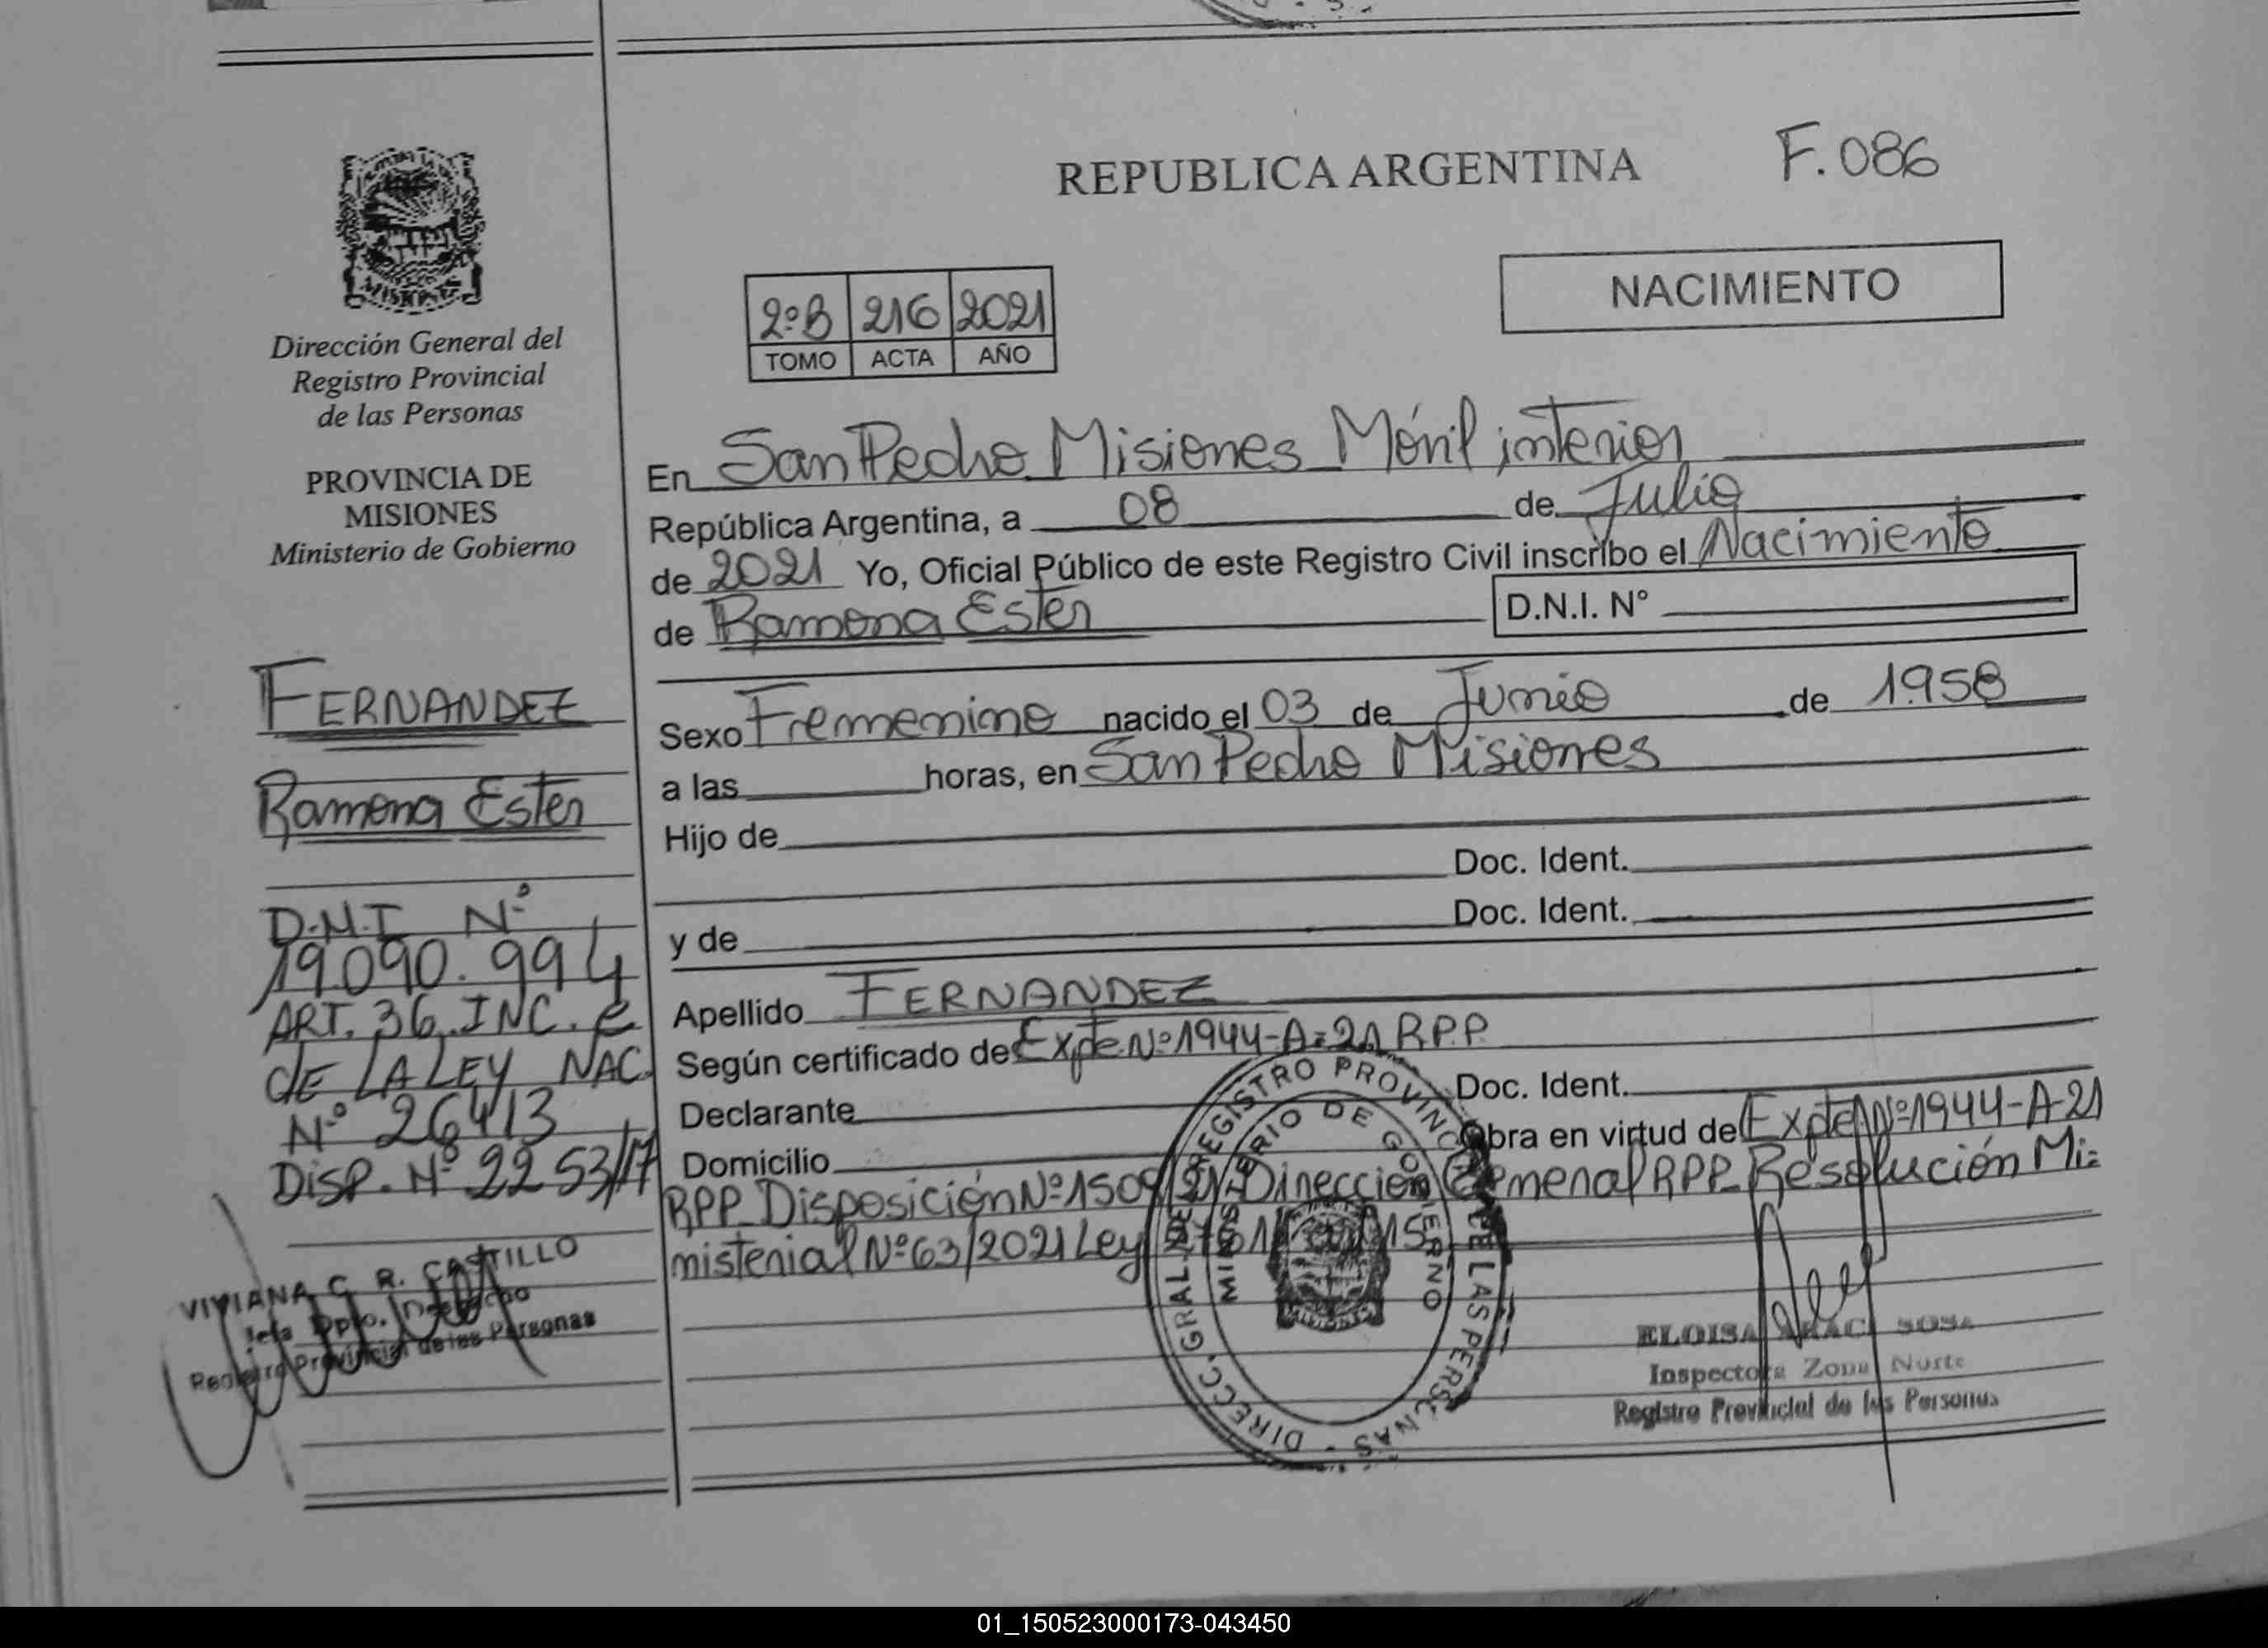 REPUBLICA ARGENTINA F.086
NACIMIENTO
2ºB 216 2021
TOMO ACTA AÑO
MISIONES
Dirección General del
Registro Provincial
de las Personas
PROVINCIA DE
MISIONES
Ministerio de Gobierno
FERNANDEZ
Ramona Ester
D.N.I Nº
19.090.994
ART. 36. INC. e
dE LA LEY NAC.
Nº 26413
DISP. Nº 2253/17
VIVIANA C. R. CASTILLO
Jefa Dpto.
Registro Provincial de las Personas
En San Pedro Misiones Móvil interior
República Argentina, a 08 de Julio
de 2021 Yo, Oficial Público de este Registro Civil inscribo el Nacimiento
de Ramona Ester D.N.I. Nº
Sexo Femenino nacido el 03 de Junio de 1958
a las horas, en San Pedro Misiones
Hijo de
Doc. Ident.
y de Doc. Ident.
Apellido FERNANDEZ
Según certificado de Expte. Nº 1944-A-21 R.P.P.
Declarante Doc. Ident.
Domicilio Obra en virtud de Expte Nº 1944-A-21
RPP Disposición Nº Dirección General RPP Resolución Mi=
nisterial Nº 63/2021 Ley
DIRECC. GRAL. DE REGISTRO PROVINCIAL DE LAS PERSONAS
MINISTERIO DE GOBIERNO
ELOISA SOSA
Inspectora Zona Norte
Registro Provincial de las Personas
01_150523000173-043450